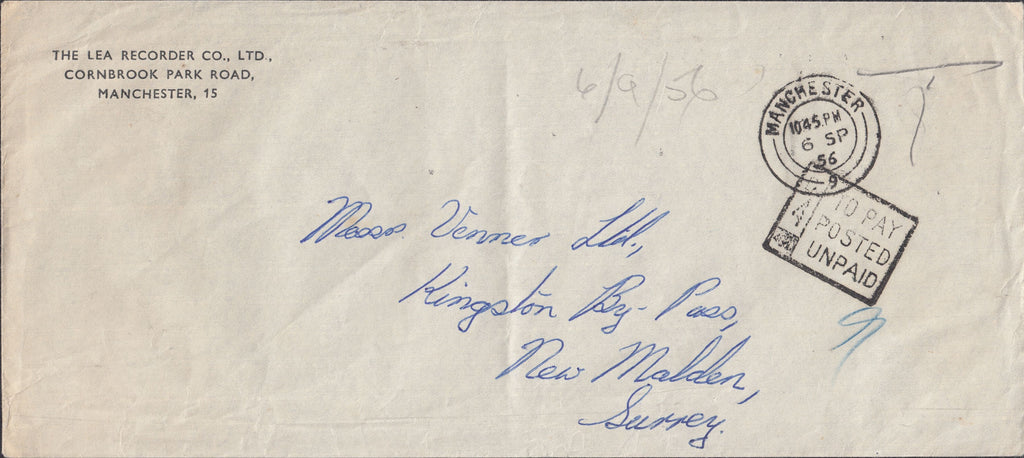 THE LEA RECORDER CO., LTD.,
CORNBROOK PARK ROAD,
MANCHESTER, 15
6/9/56
MANCHESTER
10 45 PM
6 SP
56
9
TO PAY
POSTED
UNPAID
Messrs. Venner Ltd.,
Kingston By-Pass,
New Malden,
Surrey.